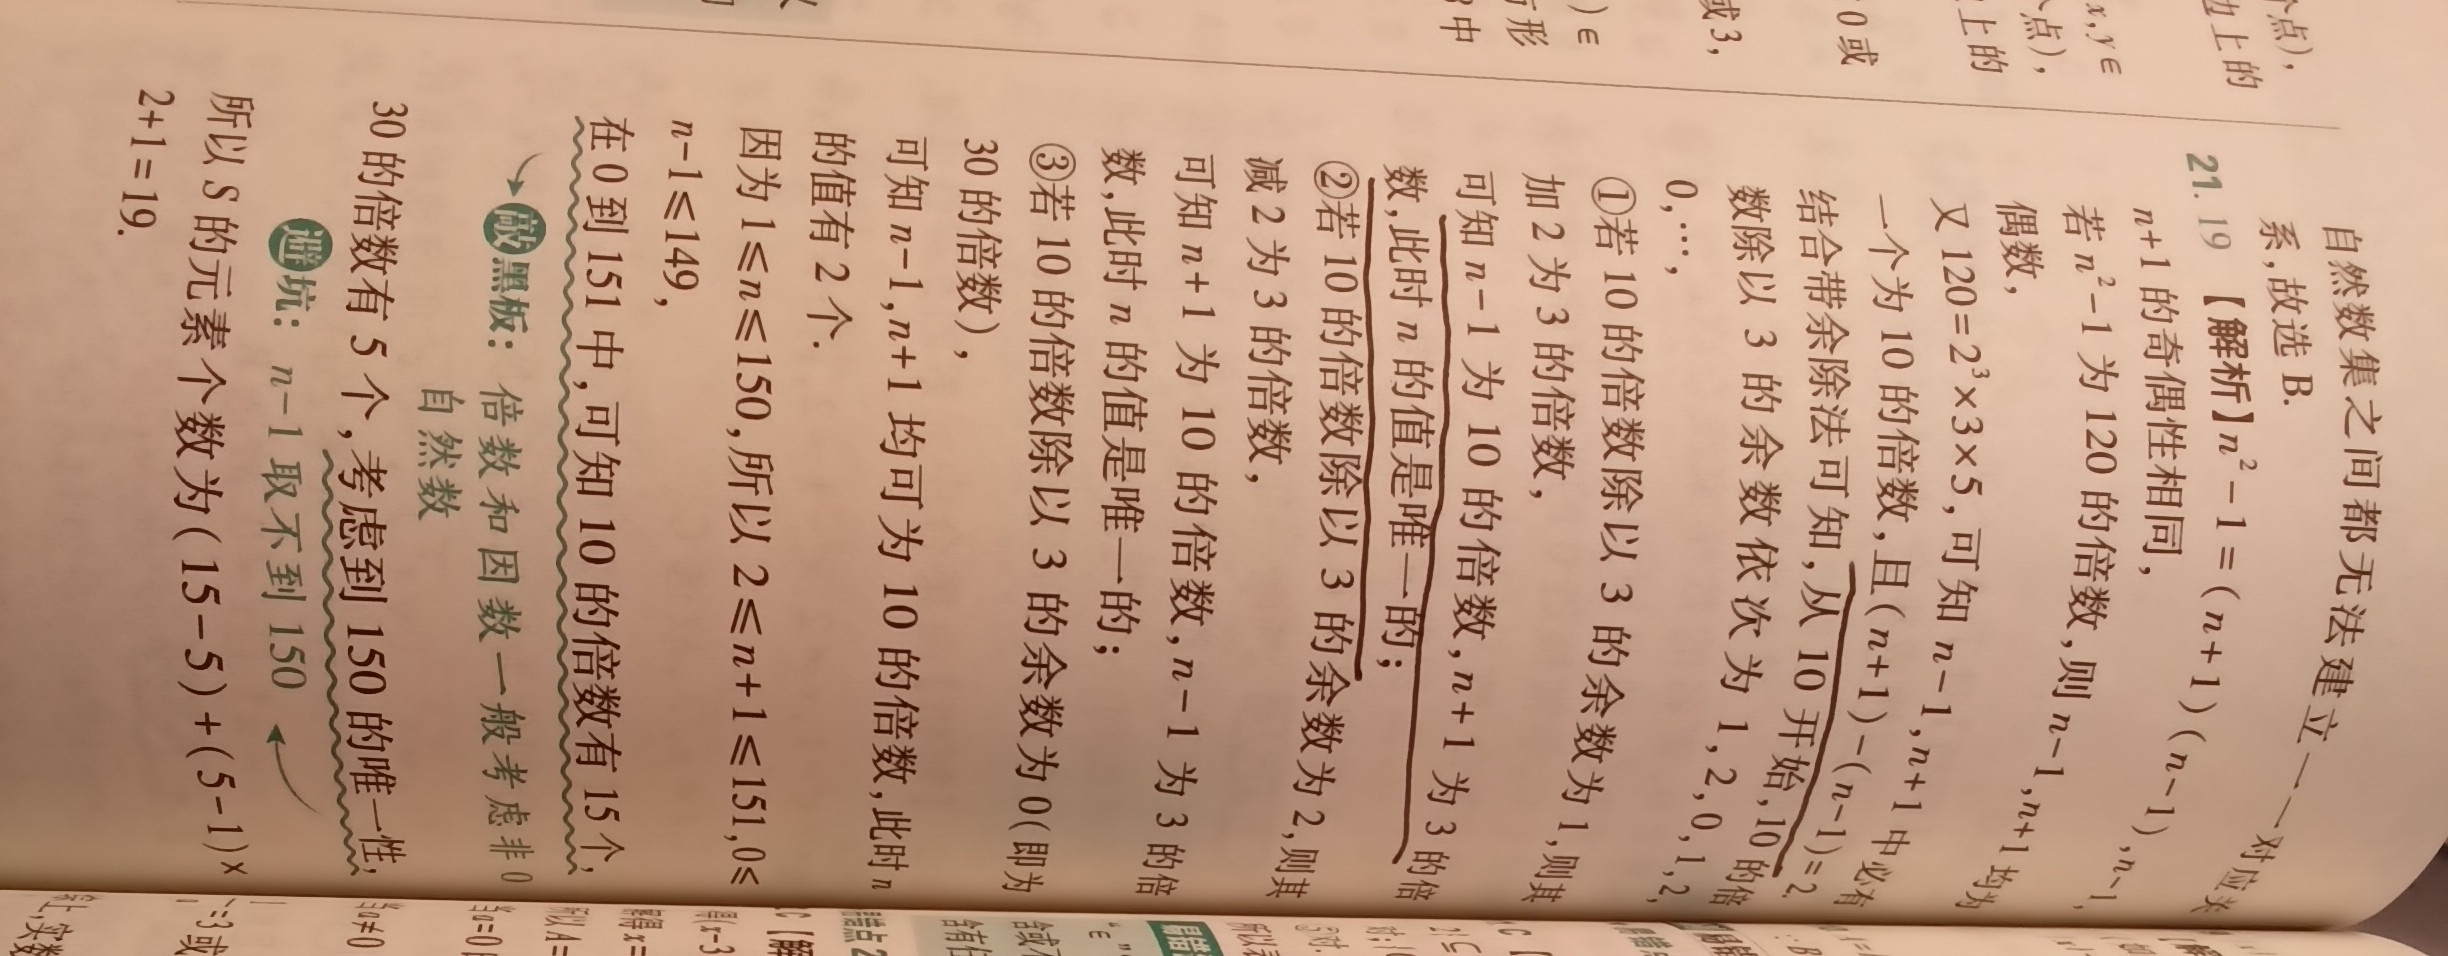 个点),
边上的
x,y∈
个点),
上的
0或
或3,
)∈
方形
3中
自然数集之间都无法建立一一对应关
系,故选B.
21. 19 【解析】n²-1=(n+1)(n-1),n-1,
n+1的奇偶性相同,
若n²-1为120的倍数,则n-1,n+1均为
偶数,
又120=2³×3×5,可知n-1,n+1中必有
一个为10的倍数,且(n+1)-(n-1)=2.
结合带余除法可知,从10开始,10的倍
数除以3的余数依次为1,2,0,1,2,
0,…,
①若10的倍数除以3的余数为1,则其
加2为3的倍数,
可知n-1为10的倍数,n+1为3的倍
数,此时n的值是唯一的;
②若10的倍数除以3的余数为2,则其
减2为3的倍数,
可知n+1为10的倍数,n-1为3的倍
数,此时n的值是唯一的;
③若10的倍数除以3的余数为0(即为
30的倍数),
可知n-1,n+1均可为10的倍数,此时n
的值有2个.
因为1≤n≤150,所以2≤n+1≤151,0≤
n-1≤149,
在0到151中,可知10的倍数有15个,
敲黑板: 倍数和因数一般考虑非0
自然数
30的倍数有5个,考虑到150的唯一性,
避坑: n-1取不到150
所以S的元素个数为(15-5)+(5-1)×
2+1=19.
所以A=
当a=0
当a≠0
=3或
上,实数